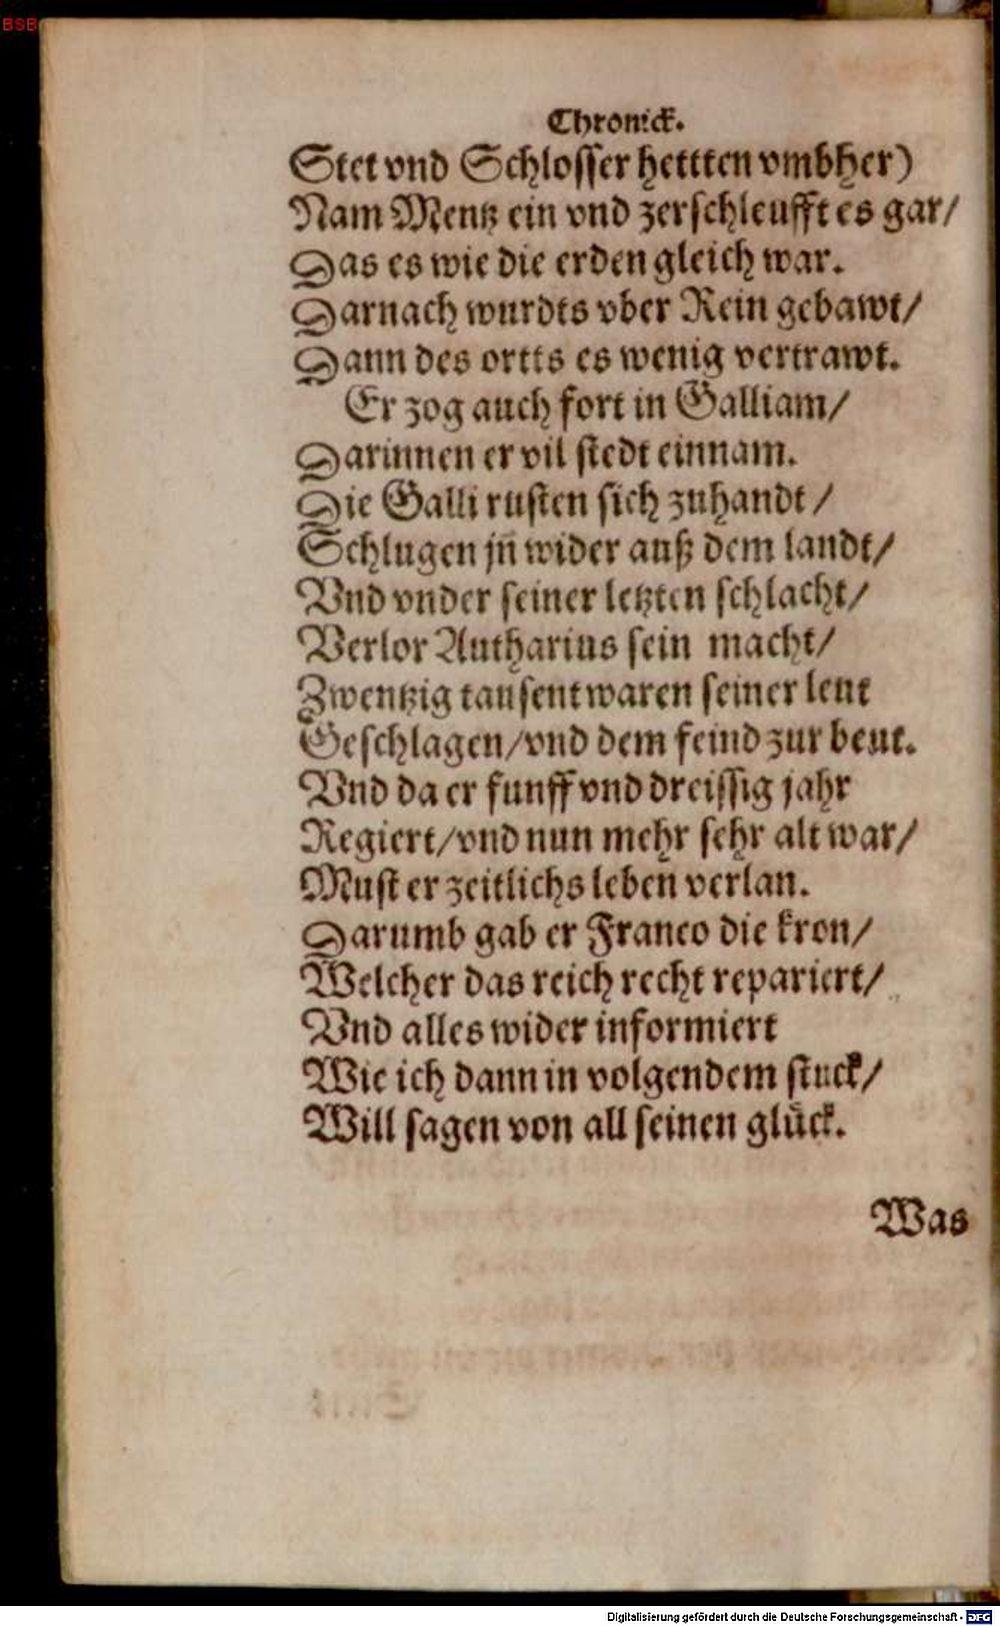 BSB
Chronick.
Stet vnd Schlosser hettten vmbher)
Nam Mentz ein vnd zerschleufft es gar/
Das es wie die erden gleich war.
Darnach wurdts vber Rein gebawt/
Dann des ortts es wenig vertrawt.
Er zog auch fort in Galliam/
Darinnen er vil stedt einnam.
Die Galli rusten sich zuhandt/
Schlugen jn̄ wider auß dem landt/
Vnd vnder seiner letzten schlacht/
Verlor Autharius sein macht/
Zwentzig tausent waren seiner leut
Geschlagen/vnd dem feind zur beut.
Vnd da er funff vnd dreissig jahr
Regiert/vnd nun mehr sehr alt war/
Must er zeitlichs leben verlan.
Darumb gab er Franco die kron/
Welcher das reich recht repariert/
Vnd alles wider informiert
Wie ich dann in volgendem stuck/
Will sagen von all seinen glück.
Was
Digitalisierung gefördert durch die Deutsche Forschungsgemeinschaft - DFG